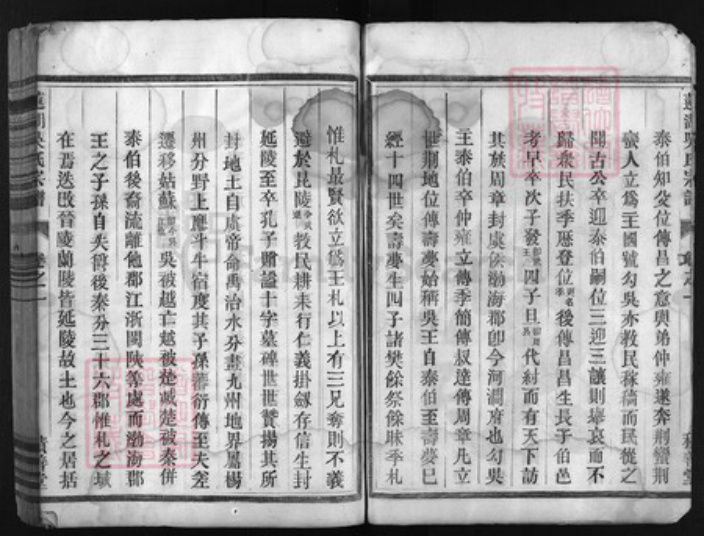 泰伯知父位傳昌之意與弟仲雍遂奔荆蠻荆
蠻人立爲王國號勾吳亦教民稼穡而民從之
聞古公卒迎泰伯嗣位三迎三讓則舉哀而不
歸衆民扶季歷登位後傳昌昌生長子伯邑
考早卒次子發四子旦代紂而有天下訪
其族周章封虞侯渤海郡卽今河澗府也勾吳
主泰伯卒仲雍立傳季簡傳叔達傳周章凡立
世荆地位傳壽夢始稱吳王自泰伯至壽夢已
經十四世矣壽夢生四子諸樊餘祭餘昧季札
惟札最賢欲立爲王札以上有三兄奪則不義
避於毘陵教民耕耒行仁義掛劔存信生封
延陵至卒孔子贈諡十字墓碑世世贊揚其所
封地土自虞帝命禹治水分畫九州地界屬楊
州分野上應斗牛宿度其子孫繁衍傳至夫差
遷移姑蘇吳被越亡越被楚烕楚被秦併
泰伯後裔流離他郡江浙閩陝等處而渤海郡
王之子孫自失爵後秦分三十六郡惟札之域
在焉迭改晉陵蘭陵皆延陵故土也今之居括
吳氏宗譜
卷之一
積善堂